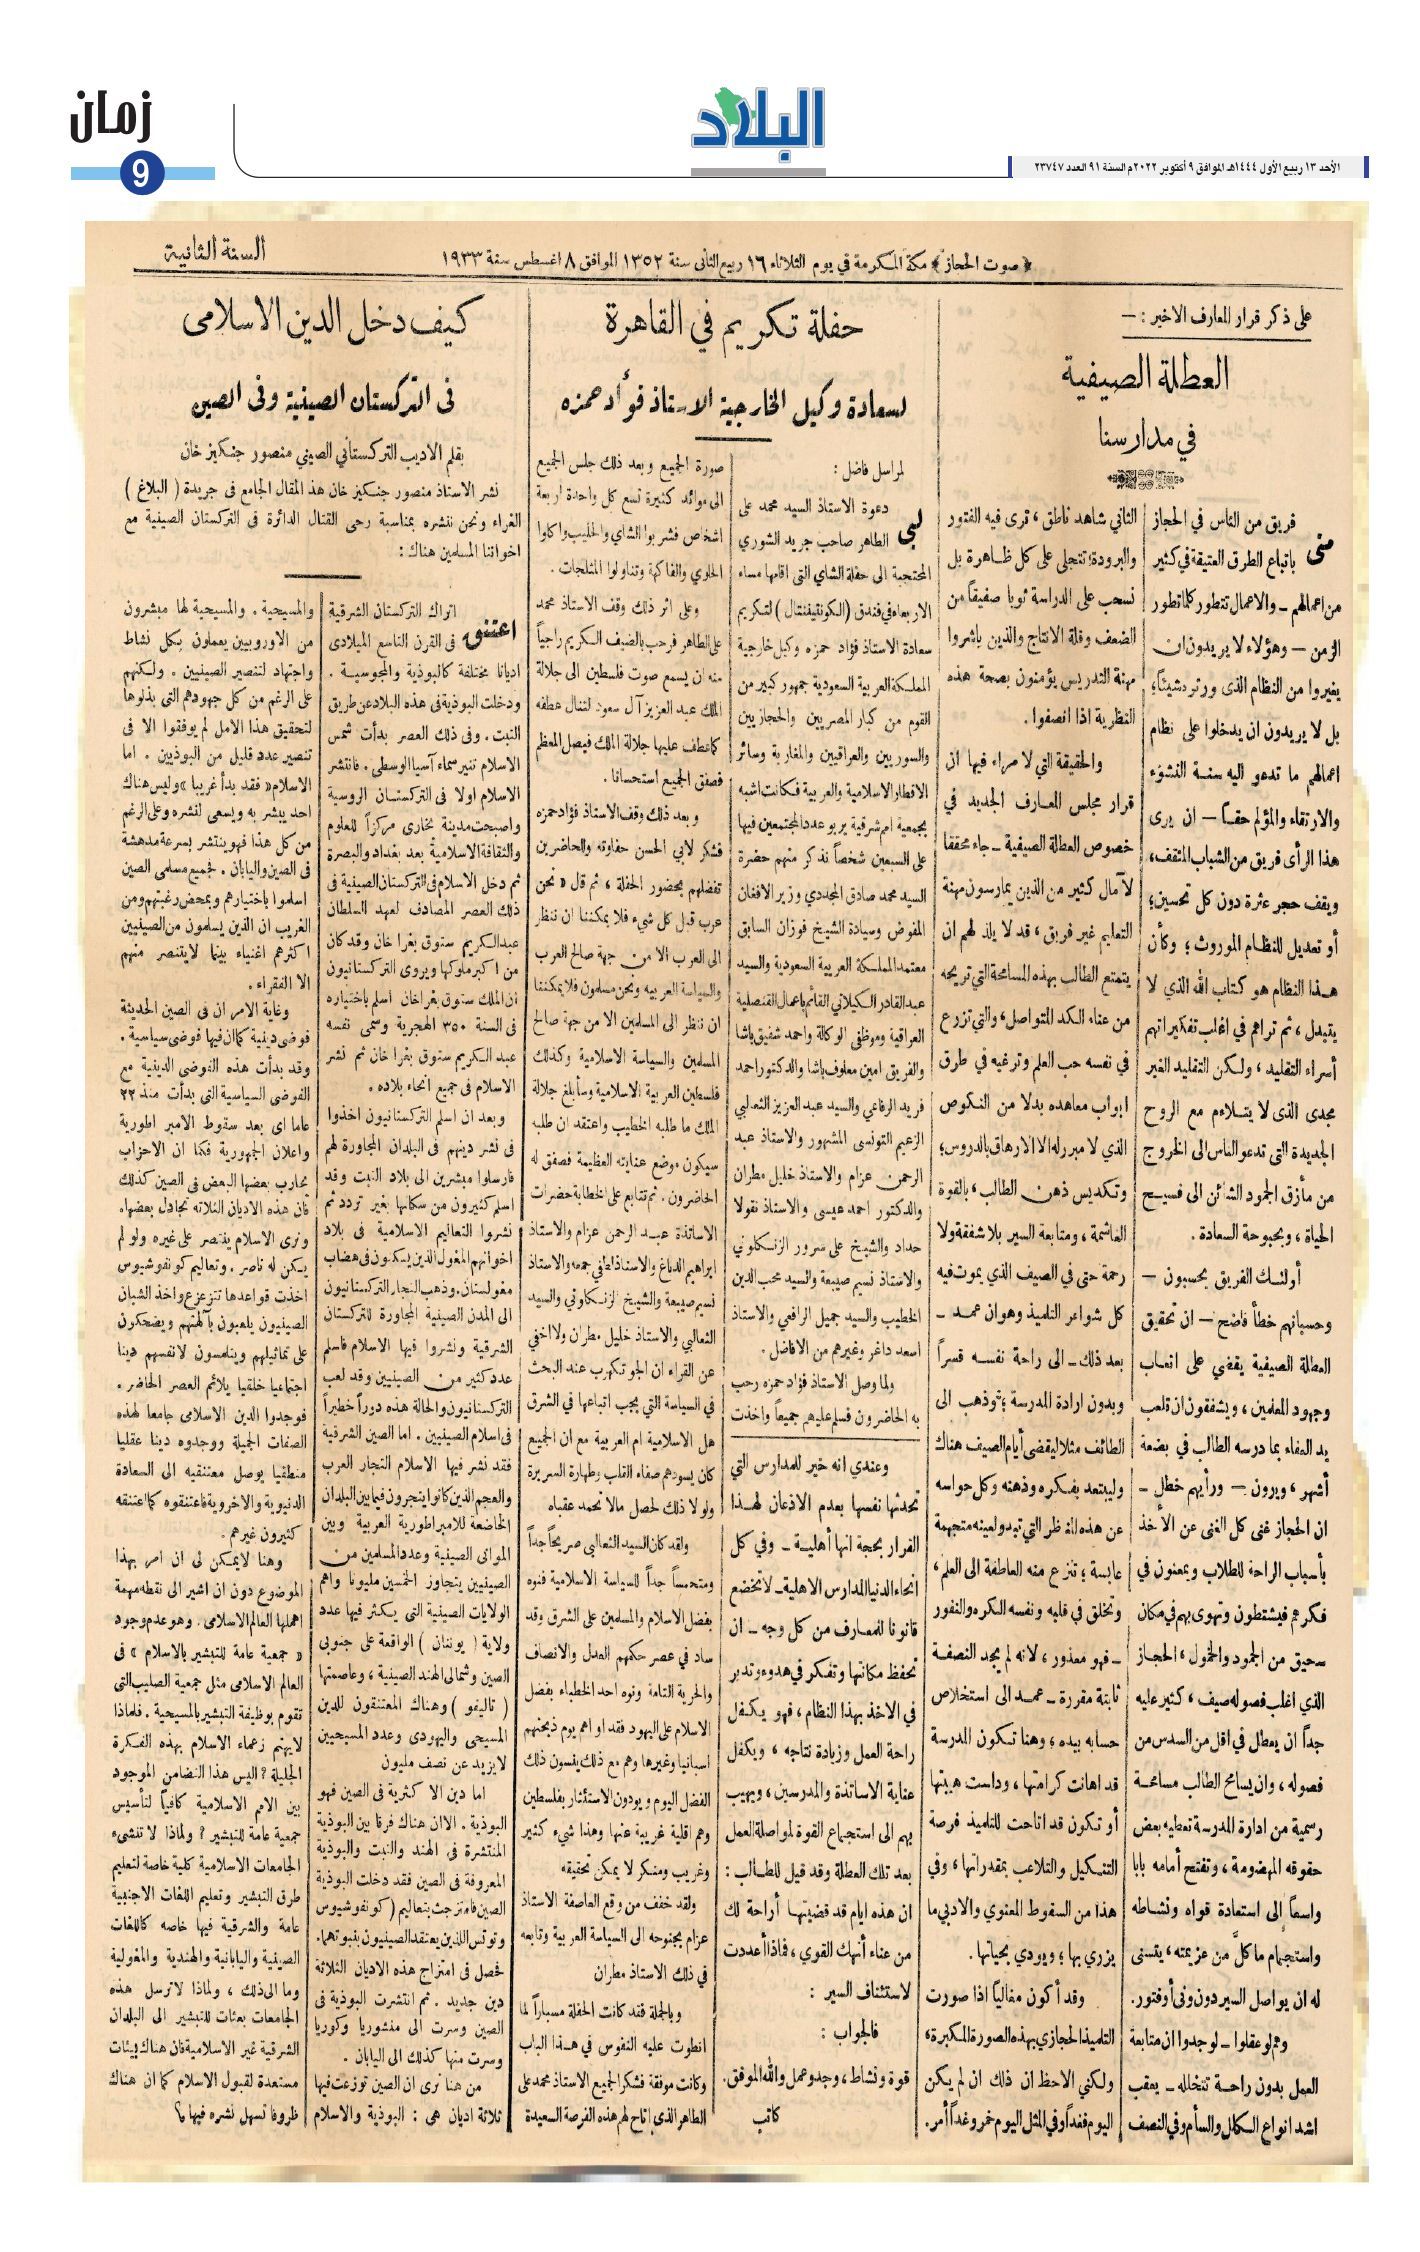 زمان
9
البلاد
الأحد ١٣ ربيع الأول ١٤٤٤هـ الموافق ٩ أكتوبر ٢٠٢٢م السنة ٩١ العدد ٢٣٧٤٧
﴿ صوت الحجاز ﴾ مكة المكرمة في يوم الثلاثاء ١٦ ربيع الثانى سنة ١٣٥٢ الموافق ٨ اغسطس سنة ١٩٣٣
السنة الثانية
على ذكر قرار المعارف الاخير : —
العطلة الصيفية
في مدارسنا
منى فريق من الناس في الحجاز
باتباع الطرق العتيقة في كثير
من اعمالهم — والاعمال تتطور كلما تطور
الزمن — وهؤلاء لا يريدون ان
يغيروا من النظام الذى ورثوه شيئاً؛
بل لا يريدون ان يدخلوا على نظام
اعمالهم ما تدعو اليه سنة النشوء
والارتقاء والمؤلم حقاً — ان يرى
هذا الرأى فريق من الشباب المثقف،
ويقف حجر عثرة دون كل تحسين؛
أو تعديل للنظام الموروث ؛ وكأن
هذا النظام هو كتاب الله الذي لا
يتبدل ، ثم تراهم في اغلب تفكيراتهم
أسراء التقليد ، ولكن التقليد الغير
مجدى الذى لا يتلاءم مع الروح
الجديدة التي تدعو الناس الى الخروج
من مأزق الجمود الشائن الى فسيح
الحياة ، وبحبوحة السعادة .
أولئك الفريق يحسبون —
وحسبانهم خطأ فاضح — ان تحقيق
العطلة الصيفية يقضي على اتعاب
وجهود المعلمين ، ويشفقون ان تلعب
يد العفاء بما درسه الطالب في بضعة
أشهر ، ويرون — ورأيهم خطل —
ان الحجاز غنى كل الغنى عن الأخذ
بأسباب الراحة للطلاب ويمعنون في
فكرهم فيشتطون وتهوى بهم في مكان
سحيق من الجمود والخمول ، الحجاز
الذي اغلب فصوله صيف ، كثير عليه
جداً ان يعطل في اقل من السدس من
فصوله ، وان يسامح الطالب مسامحة
رسمية من ادارة المدرسة تعطيه بعض
حقوقه المهضومة ، وتفتح أمامه بابا
واسعاً إلى استعادة قواه ونشاطه
واستجمام ما كلّ من عزيمته ، يتسنى
له ان يواصل السير دون ونى أو فتور.
وهم لو عقلوا — لوجدوا ان متابعة
العمل بدون راحة تتخلله — يعقب
اشد انواع الكلل والسأم وفي النصف
الثاني شاهد ناطق ، ترى فيه الفتور
والبرودة؛ تتجلى على كل ظاهرة بل
نسحب على الدراسة ثوبا صفيقاً من
الضعف وقلة الانتاج والذين باشروا
مهنة التدريس يؤمنون بصحة هذه
النظرية اذا انصفوا .
والحقيقة التي لا مراء فيها ان
قرار مجلس المعارف الجديد في
خصوص العطلة الصيفية — جاء محققا
لآمال كثير من الذين يمارسون مهنة
التعليم غير فريق ، قد لا يلذ لهم ان
يتمتع الطالب بهذه المسامحة التي تريحه
من عناء الكد المتواصل ، والتي تزرع
في نفسه حب العلم وترغيه في طرق
ابواب معاهده بدلا من النكوص
الذي لا مبرر له الا الارهاق بالدروس ؛
وتكديس ذهن الطالب ، بالقوة
الغاشمة ، ومتابعة السير بلا شفقة ولا
رحمة حتى في الصيف الذي يموت فيه
كل شواعر التلميذ وهوان عمد —
بعد ذلك — الى راحة نفسه قسراً
وبدون ارادة المدرسة ؛ وذهب الى
الطائف مثلا ليقضى أيام الصيف هناك
وليبتعد بفكره وذهنه وكل حواسه
عن هذه المناظر التي تبدو لعينه متجهمة
عابسة ؛ تنزع منه العاطفة الى العلم ،
وتخلق في قلبه ونفسه الكره والنفور
— فهو معذور ، لانه لم يجد النصفة
ثابتة مقررة — عمد الى استخلاص
حسابه بيده ؛ وهنا تكون المدرسة
قد اهانت كرامتها ، وداست هيبتها
أو تكون قد اتاحت للتلميذ فرصة
التنكيل والتلاعب بمقدراتها ، وفي
هذا من السقوط المعنوي والادبي ما
يزري بها ؛ ويودي بحياتها .
وقد أكون مغالياً اذا صورت
التلميذ الحجازي بهذه الصورة المكبرة،
ولكني الاحظ ان ذلك ان لم يكن
اليوم فغداً وفي المثل اليوم خمر وغداً أمر.
وعندي انه خير للمدارس التي
تحدثها نفسها بعدم الاذعان لهذا
القرار بحجة انها أهلية — وفي كل
انحاء الدنيا المدارس الاهلية — لا تخضع
قانونا للمعارف من كل وجه — ان
تحفظ مكانتها وتفكر في هدوء وتدبر
في الاخذ بهذا النظام ، فهو يكفل
راحة العمل وزيادة نتاجه ، ويكفل
عناية الاساتذة والمدرسين ، ويهيب
بهم الى استجماع القوة لمواصلة العمل
بعد تلك العطلة وقد قيل للطالب :
ان هذه ايام قد قضيتها أراحة لك
من عناء أنهك القوي ، فماذا أعددت
لاستئناف السير :
فالجواب :
قوة ونشاط ، وجد وعمل والله الموفق.
كاتب
حفلة تكريم في القاهرة
لسعادة وكيل الخارجية الاستاذ فؤاد حمزه
لمراسل فاضل :
لبى دعوة الاستاذ السيد محمد على
الطاهر صاحب جريد الشورى
المحتجبة الى حفلة الشاي التى اقامها مساء
الاربعاء في فندق (الكونتيننتال) لتكريم
سعادة الاستاذ فؤاد حمزه وكيل خارجية
المملكة العربية السعودية جمهور كبير من
القوم من كبار المصريين والحجازيين
والسوريين والعراقيين والمغاربة وسائر
الاقطار الاسلامية والعربية فكانت اشبه
بجمعية ام شرقية يربو عدد المجتمعين فيها
على السبعين شخصاً نذكر منهم حضرة
السيد محمد صادق المجددي وزير الافغان
المفوض وسيادة الشيخ فوزان السابق
معتمد المملكة العربية السعودية والسيد
عبد القادر الكيلاني القائم باعمال القنصلية
العراقية وموظفي الوكالة واحمد شفيق باشا
والفريق امين معلوف باشا والدكتور احمد
فريد الرفاعي والسيد عبد العزيز الثعالبي
الزعيم التونسى المشهور والاستاذ عبد
الرحمن عزام والاستاذ خليل مطران
والدكتور احمد عيسى والاستاذ نقولا
حداد والشيخ على سرور الزنكلوني
والاستاذ نسيم صيبعة والسيد محب الدين
الخطيب والسيد جميل الرافعي والاستاذ
اسعد داغر وغيرهم من الافاضل .
ولما وصل الاستاذ فؤاد حمزه رحب
به الحاضرون فسلم عليهم جميعاً واخذت
صورة الجميع وبعد ذلك جلس الجميع
الى موائد كثيرة تسع كل واحدة اربعة
اشخاص فشربوا الشاي والحليب واكلوا
الحلوى والفاكهة وتناولوا المثلجات .
وعلى اثر ذلك وقف الاستاذ محمد
على الطاهر فرحب بالضيف الكريم راجياً
منه ان يسمع صوت فلسطين الى جلالة
الملك عبد العزيز آل سعود لتنال عطفه
كما عطف عليها جلالة الملك فيصل المعظم
فصفق الجميع استحسانا .
وبعد ذلك وقف الاستاذ فؤاد حمزه
فشكر لابي الحسن حفاوته والحاضرين
تفضلهم بحضور الحفلة ، ثم قال « نحن
عرب قبل كل شيء فلا يمكننا ان ننظر
الى العرب الا من جهة صالح العرب
والسياسة العربيه ونحن مسلمون فلا يمكننا
ان ننظر الى المسلمين الا من جهة صالح
المسلمين والسياسة الاسلامية وكذلك
فلسطين العربية الاسلامية وسأبلغ جلالة
الملك ما طلبه الخطيب واعتقد ان طلبه
سيكون موضع عنايته العظيمة فصفق له
الحاضرون . ثم تتابع على الخطابة حضرات
الاساتذة عبد الرحمن عزام والاستاذ
ابراهيم الدباغ والاستاذ لطفي جمعه والاستاذ
نسيم صيبعة والشيخ الزنكلوني والسيد
الثعالبي والاستاذ خليل مطران ولا اخفي
عن القراء ان الجو تكهرب عند البحث
في السياسة التي يجب اتباعها في الشرق
هل الاسلامية ام العربية مع ان الجميع
كان يسودهم صفاء القلب وطهارة السريرة
ولولا ذلك لحصل مالا تحمد عقباه
ولقد كان السيد الثعالبى صريحاً جداً
ومتحمساً جداً للسياسة الاسلامية فنوه
بفضل الاسلام والمسلمين على الشرق وقد
ساد في عصر حكمهم العدل والانصاف
والحرية التامة ونوه احد الخطباء بفضل
الاسلام على اليهود فقد اواهم يوم ذبحتهم
اسبانيا وغيرها وهم مع ذلك ينسون ذلك
الفضل اليوم ويودون الاستئثار بفلسطين
وهم اقلية غريبة عنها وهذا شيء كثير
وغريب ومنكر لا يمكن تحقيقه
ولقد خفف من وقع العاصفة الاستاذ
عزام بجنوحه الى السياسة العربية وتابعه
في ذلك الاستاذ مطران
وبالجملة فقد كانت الحفلة مسباراً لما
انطوت عليه النفوس في هذا الباب
وكانت موفقة فشكر الجميع الاستاذ محمد على
الطاهر الذى اتاح لهم هذه الفرصة السعيدة
كيف دخل الدين الاسلامى
فى التركستان الصينية وفى الصين
بقلم الاديب التركستاني الصيني منصور جنكيز خان
نشر الاستاذ منصور جنكيز خان هذا المقال الجامع فى جريدة ( البلاغ )
الغراء ونحن ننشره بمناسبة رحى القتال الدائرة فى التركستان الصينية مع
اخواننا المسلمين هناك :
اعتنق اتراك التركستان الشرقية
فى القرن التاسع الميلادى
اديانا مختلفة كالبوذية والمجوسية .
ودخلت البوذية فى هذه البلاد عن طريق
التبت . وفى ذلك العصر بدأت شمس
الاسلام تنير سماء آسيا الوسطى . فانتشر
الاسلام اولا فى التركستان الروسية
واصبحت مدينة بخارى مركزاً للعلوم
والثقافة الاسلامية بعد بغداد والبصرة
ثم دخل الاسلام فى التركستان الصينية فى
ذلك العصر المصادف لعهد السلطان
عبد الكريم ستوق بغرا خان وقد كان
من اكبر ملوكها ويروى التركستانيون
ان الملك ستوق بغرا خان اسلم باختياره
فى السنة ٣٥٠ الهجرية وسمى نفسه
عبد الكريم ستوق بغرا خان ثم نشر
الاسلام فى جميع انحاء بلاده .
وبعد ان اسلم التركستانيون اخذوا
فى نشر دينهم فى البلدان المجاورة لهم
فارسلوا مبشرين الى بلاد التبت وقد
اسلم كثيرون من سكانها بغير تردد ثم
نشروا التعاليم الاسلامية فى بلاد
اخوانهم المغول الذين يسكنون فى هضاب
مغولستان. وذهب التجار التركستانيون
الى المدن الصينية المجاورة للتركستان
الشرقية ونشروا فيها الاسلام فاسلم
عدد كثير من الصينيين وقد لعب
التركستانيون والحالة هذه دوراً خطيراً
فى اسلام الصينيين . اما الصين الشرقية
فقد نشر فيها الاسلام التجار العرب
والعجم الذين كانوا يتجرون فيما بين البلدان
الخاضعة للامبراطورية العربية وبين
الموانى الصينية وعدد المسلمين من
الصينيين يتجاوز الخمسين مليونا واهم
الولايات الصينية التى يكثر فيها عدد
ولاية ( يوننان ) الواقعة على جنوبى
الصين وشمالى الهند الصينية ، وعاصمتها
( تاليفو ) وهناك المعتنقون للدين
المسيحى واليهودى وعدد المسيحيين
لا يزيد عن نصف مليون
اما دين الاكثرية فى الصين فهو
البوذية . الا ان هناك فرقا بين البوذية
المنتشرة فى الهند والتبت والبوذية
المعروفة فى الصين فقد دخلت البوذية
الصين فامتزجت بتعاليم ( كونفوشيوس
وتوتس اللذين يعتقد الصينيون بنبوتهما.
فحصل فى امتزاج هذه الاديان الثلاثة
دين جديد . ثم انتشرت البوذية فى
الصين وسرت الى منشوريا وكوريا
وسرت منها كذلك الى اليابان .
من هنا نرى ان الصين توزعت فيها
ثلاثة اديان هى : البوذية والاسلام
والمسيحية . والمسيحية لها مبشرون
من الاوروبيين يعملون بكل نشاط
واجتهاد لتنصير الصينيين . ولكنهم
على الرغم من كل جهودهم التى بذلوها
لتحقيق هذا الامل لم يوفقوا الا فى
تنصير عدد قليل من البوذيين . اما
الاسلام « فقد بدأ غريبا » وليس هناك
احد يبشر به ويسعى لنشره وعلى الرغم
من كل هذا فهو ينتشر بسرعة مدهشة
فى الصين واليابان . فجميع مسلمى الصين
اسلموا باختيارهم وبمحض رغبتهم ومن
الغريب ان الذين يسلمون من الصينيين
اكثرهم اغنياء بينما لا يتنصر منهم
الا الفقراء .
وغاية الامر ان فى الصين الحديثة
فوضى دينية كما ان فيها فوضى سياسية .
وقد بدأت هذه الفوضى الدينية مع
الفوضى السياسية التى بدأت منذ ٢٢
عاما اى بعد سقوط الامبراطورية
واعلان الجمهورية فكما ان الاحزاب
يحارب بعضها البعض فى الصين كذلك
فان هذه الاديان الثلاثه تجادل بعضها.
ونرى الاسلام ينتصر على غيره ولو لم
يكن له ناصر . وتعاليم كونفوشيوس
اخذت قواعدها تتزعزع واخذ الشبان
الصينيون يلعبون بآلهتهم ويضحكون
على تماثيلهم ويتلمسون لانفسهم دينا
اجتماعيا خلقيا يلائم العصر الحاضر .
فوجدوا الدين الاسلامى جامعا لهذه
الصفات الجميلة ووجدوه دينا عقليا
منطقيا يوصل معتنقيه الى السعادة
الدنيوية والاخروية فاعتنقوه كما اعتنقه
كثيرون غيرهم .
وهنا لا يمكن لى ان امر بهذا
الموضوع دون ان اشير الى نقطه مهمة
اهملها العالم الاسلامى . وهو عدم وجود
« جمعية عامة للتبشير بالاسلام » فى
العالم الاسلامى مثل جمعية الصليب التى
تقوم بوظيفة التبشير بالمسيحية . فلماذا
لا يهتم زعماء الاسلام بهذه الفكرة
الجليلة ؟ اليس هذا التضامن الموجود
بين الامم الاسلامية كافياً لتأسيس
جمعية عامة للتبشير ؟ ولماذا لا تنشىء
الجامعات الاسلامية كلية خاصة لتعليم
طرق التبشير وتعليم اللغات الاجنبية
عامة والشرقية فيها خاصه كاللغات
الصينية واليابانية والهندية والمغولية
وما الى ذلك ، ولماذا لا ترسل هذه
الجامعات بعثات للتبشير الى البلدان
الشرقية غير الاسلامية فان هناك بيئات
مستعدة لقبول الاسلام كما ان هناك
ظروفا تسهل نشره فيها ؟